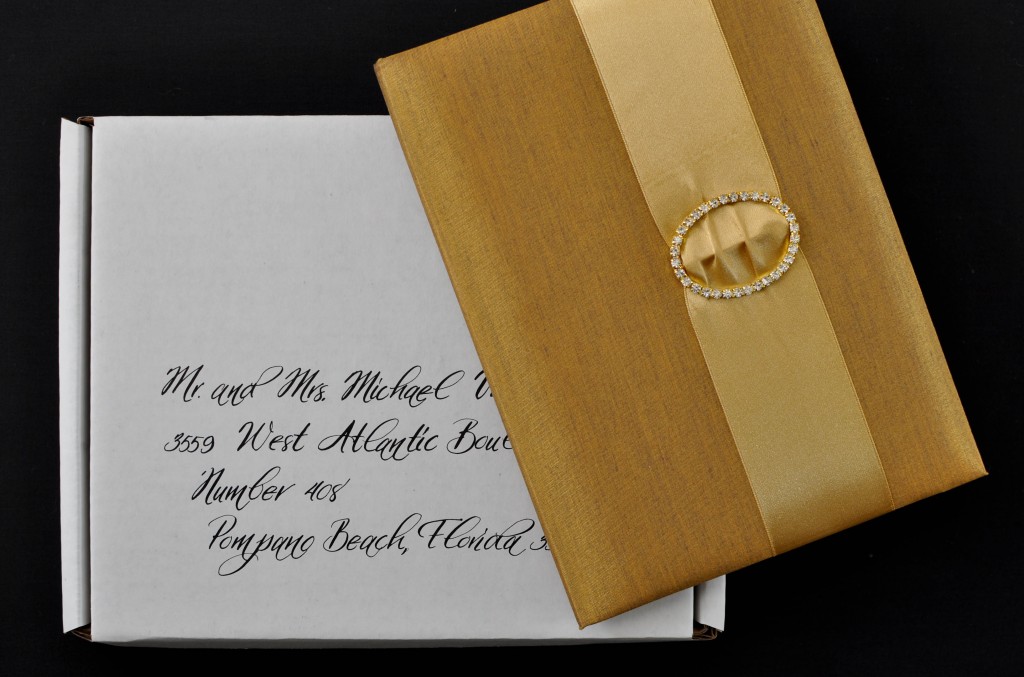 Mr. and Mrs. Michael
3559 West Atlantic
Number 408
Pompano Beach, Florida